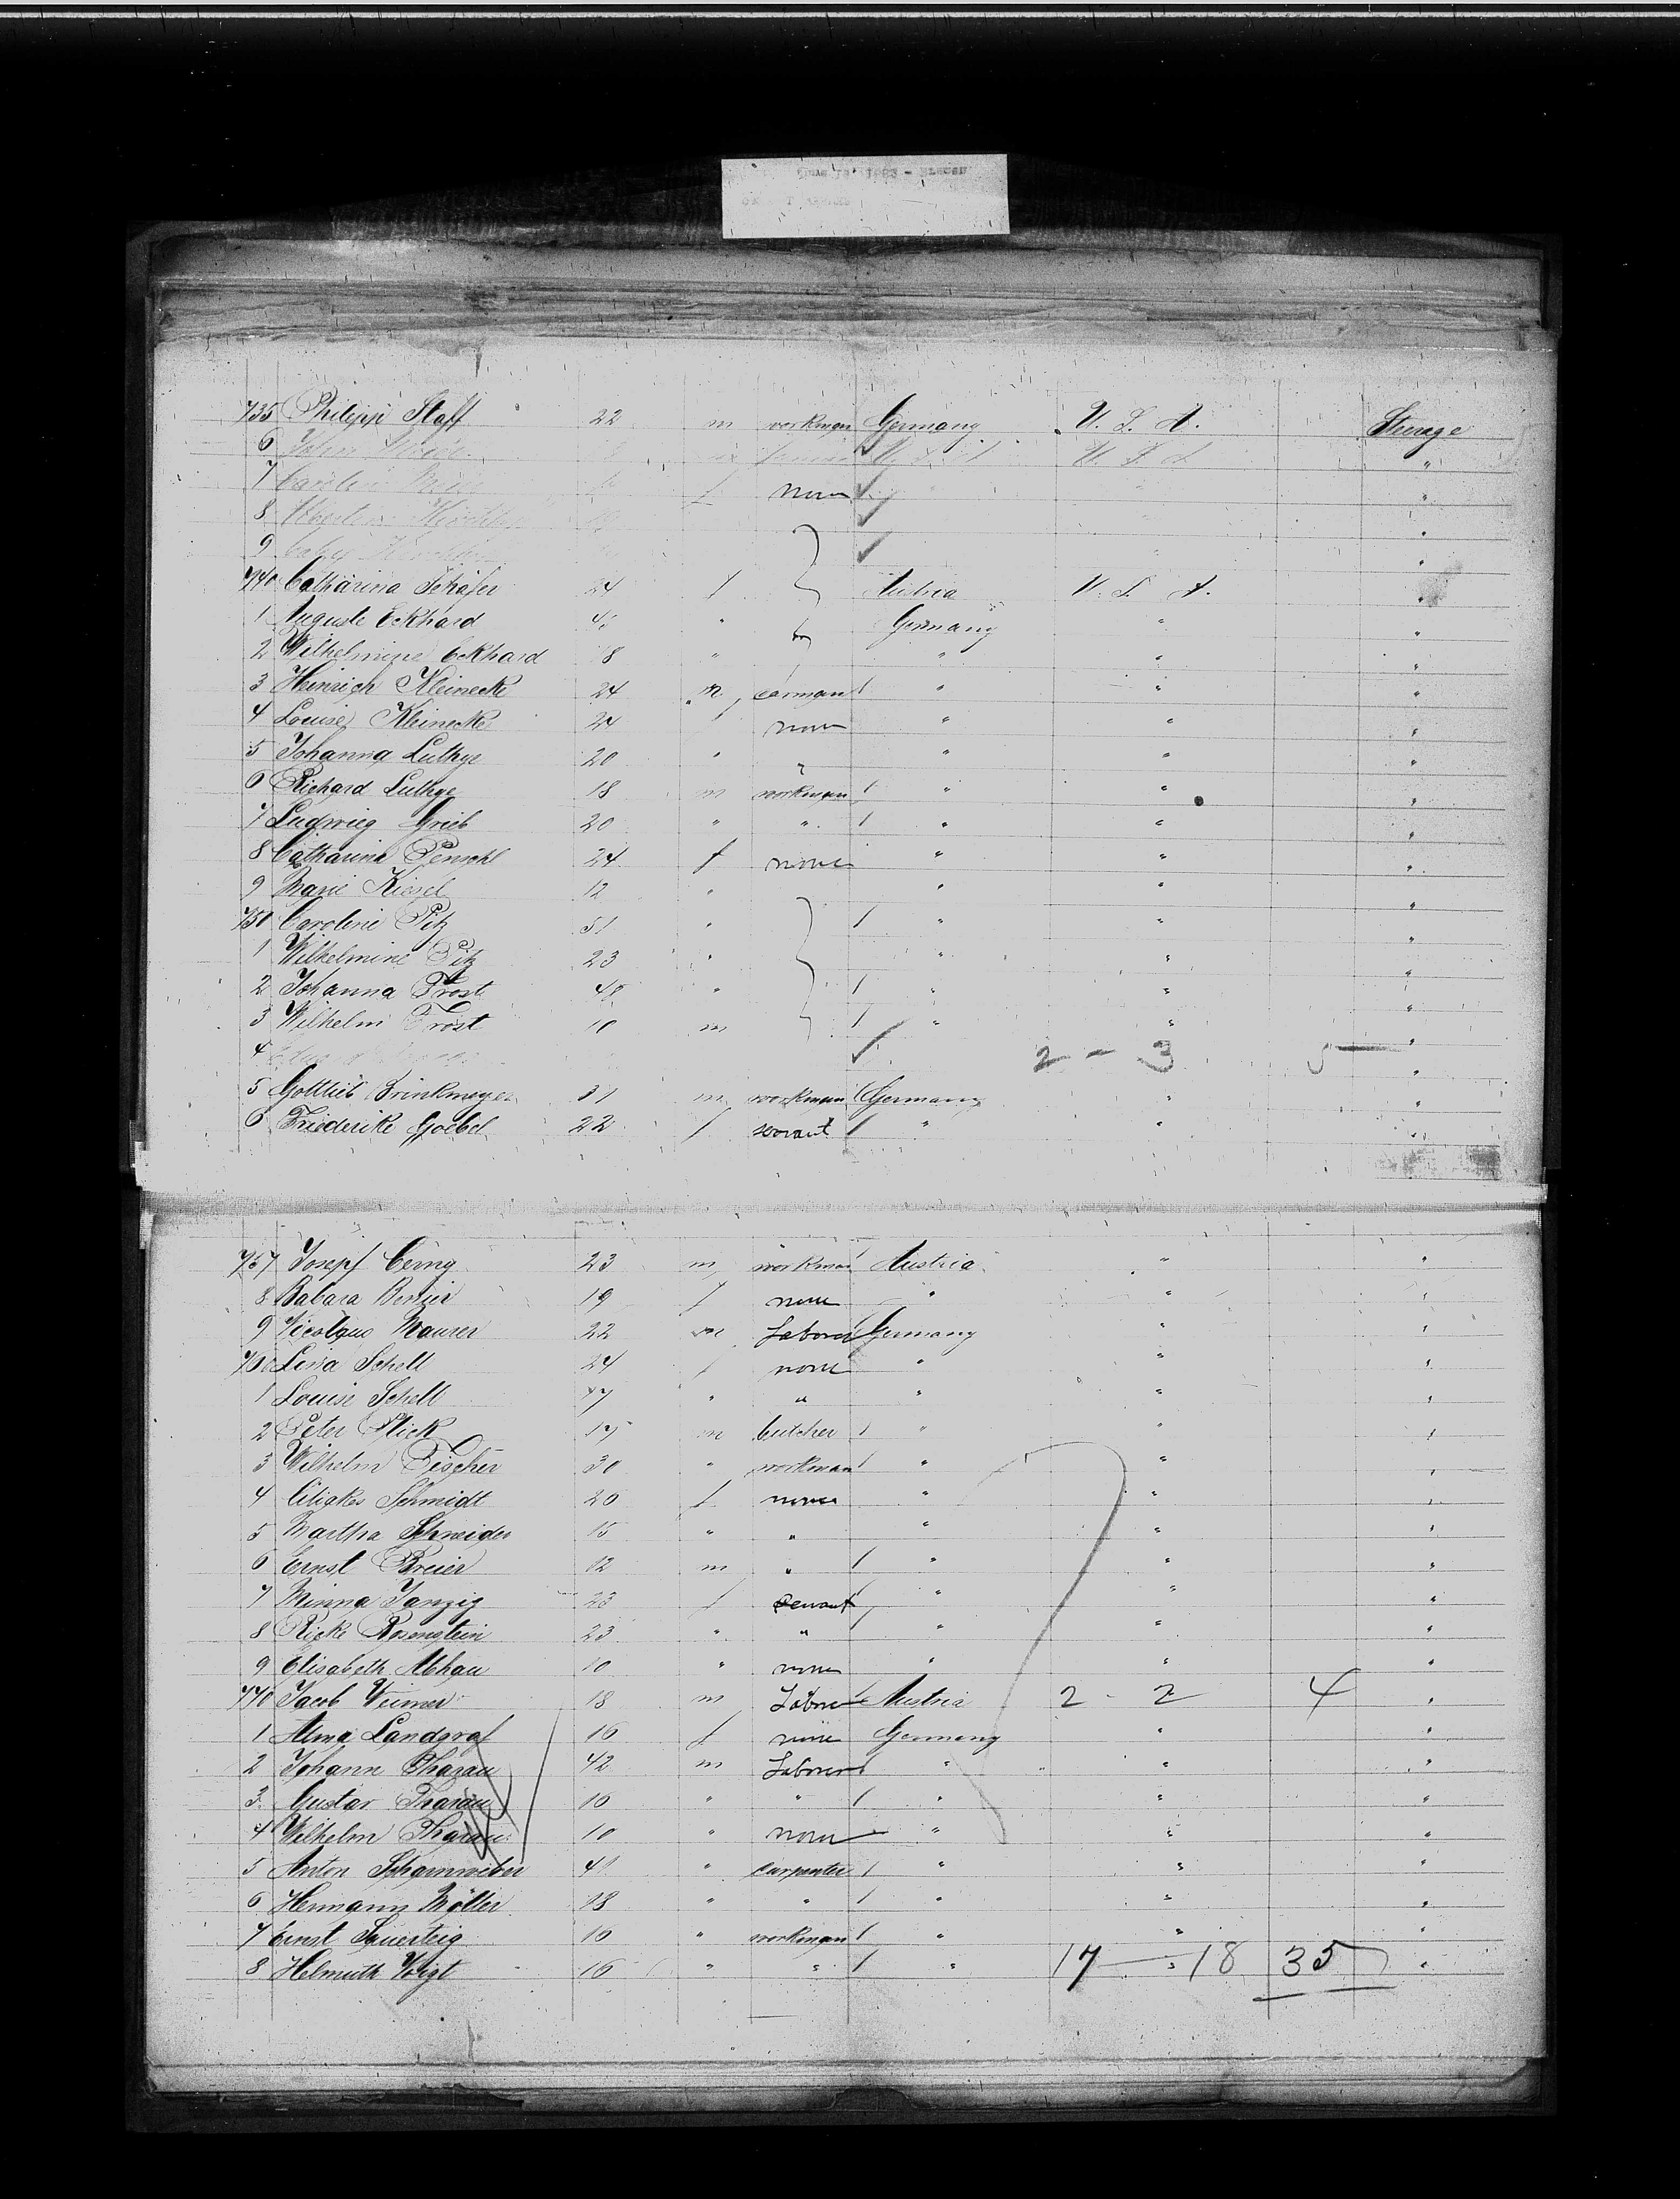 735 Philipp Staff 22 m workman Germany U. S. A. Steerage
6 U. S. A. "
7 f none "
8 "
9 "
740 Catharina Schäfer 24 f Austria U. S. A. "
1 Auguste Eckhard " Germany " "
2 Wilhelmine Eckhard 18 " " " "
3 Heinrich Kleinecke 24 m carman " " "
4 Louise Kleinecke 24 f none " " "
5 Johanna Luthge 20 " " " " "
6 Richard Luthge 18 m workman " " "
7 Ludwig Grieb 20 " " " " "
8 Catharina 24 f none " " "
9 Marie Kiesel 12 " " " "
750 Caroline Pitz 51 " " " "
1 Wilhelmine Pitz 23 " " " "
2 Johanna Frost 48 " " " "
3 Wilhelm Frost 10 m " " "
4 2 - 3 5 "
5 Gottlieb Brinkmeyer 31 m workman Germany " "
6 Friederike Goebel 22 f servant " " "
757 Josepf Cerny 23 m workman Austria " "
8 Babara 19 f none " " "
9 Nicolaus Maurer 22 m Laborer Germany " "
760 Lina Schell 24 f none " " "
1 Louise Schell " " " " "
2 Peter Flick 17 m butcher " " "
3 Wilhelm Fischer 30 " workman " " "
4 Schmidt 20 f none " " "
5 Martha Schneider 15 " " " " "
6 Ernst Breier 12 m " " " "
7 Minna Janzig 23 f servant " " "
8 Ricke Rosenstein 23 " " " " "
9 Elisabeth 10 " none " " "
770 Jacob Weimer 18 m Laborer Austria 2 - 2 4 "
1 Alma Landgraf 16 f none Germany " "
2 Johann Tharau 42 m Laborer " " "
3 Gustav Tharau 16 " " " " "
4 Wilhelm Tharau 10 " none " " "
5 Anton Scharnweber 41 " carpenter " " "
6 Hermann Möller 18 " " " " "
7 Ernst Sauerteig 16 " workman " " "
8 Helmuth Voigt 16 " " " 17 - 18 35 "